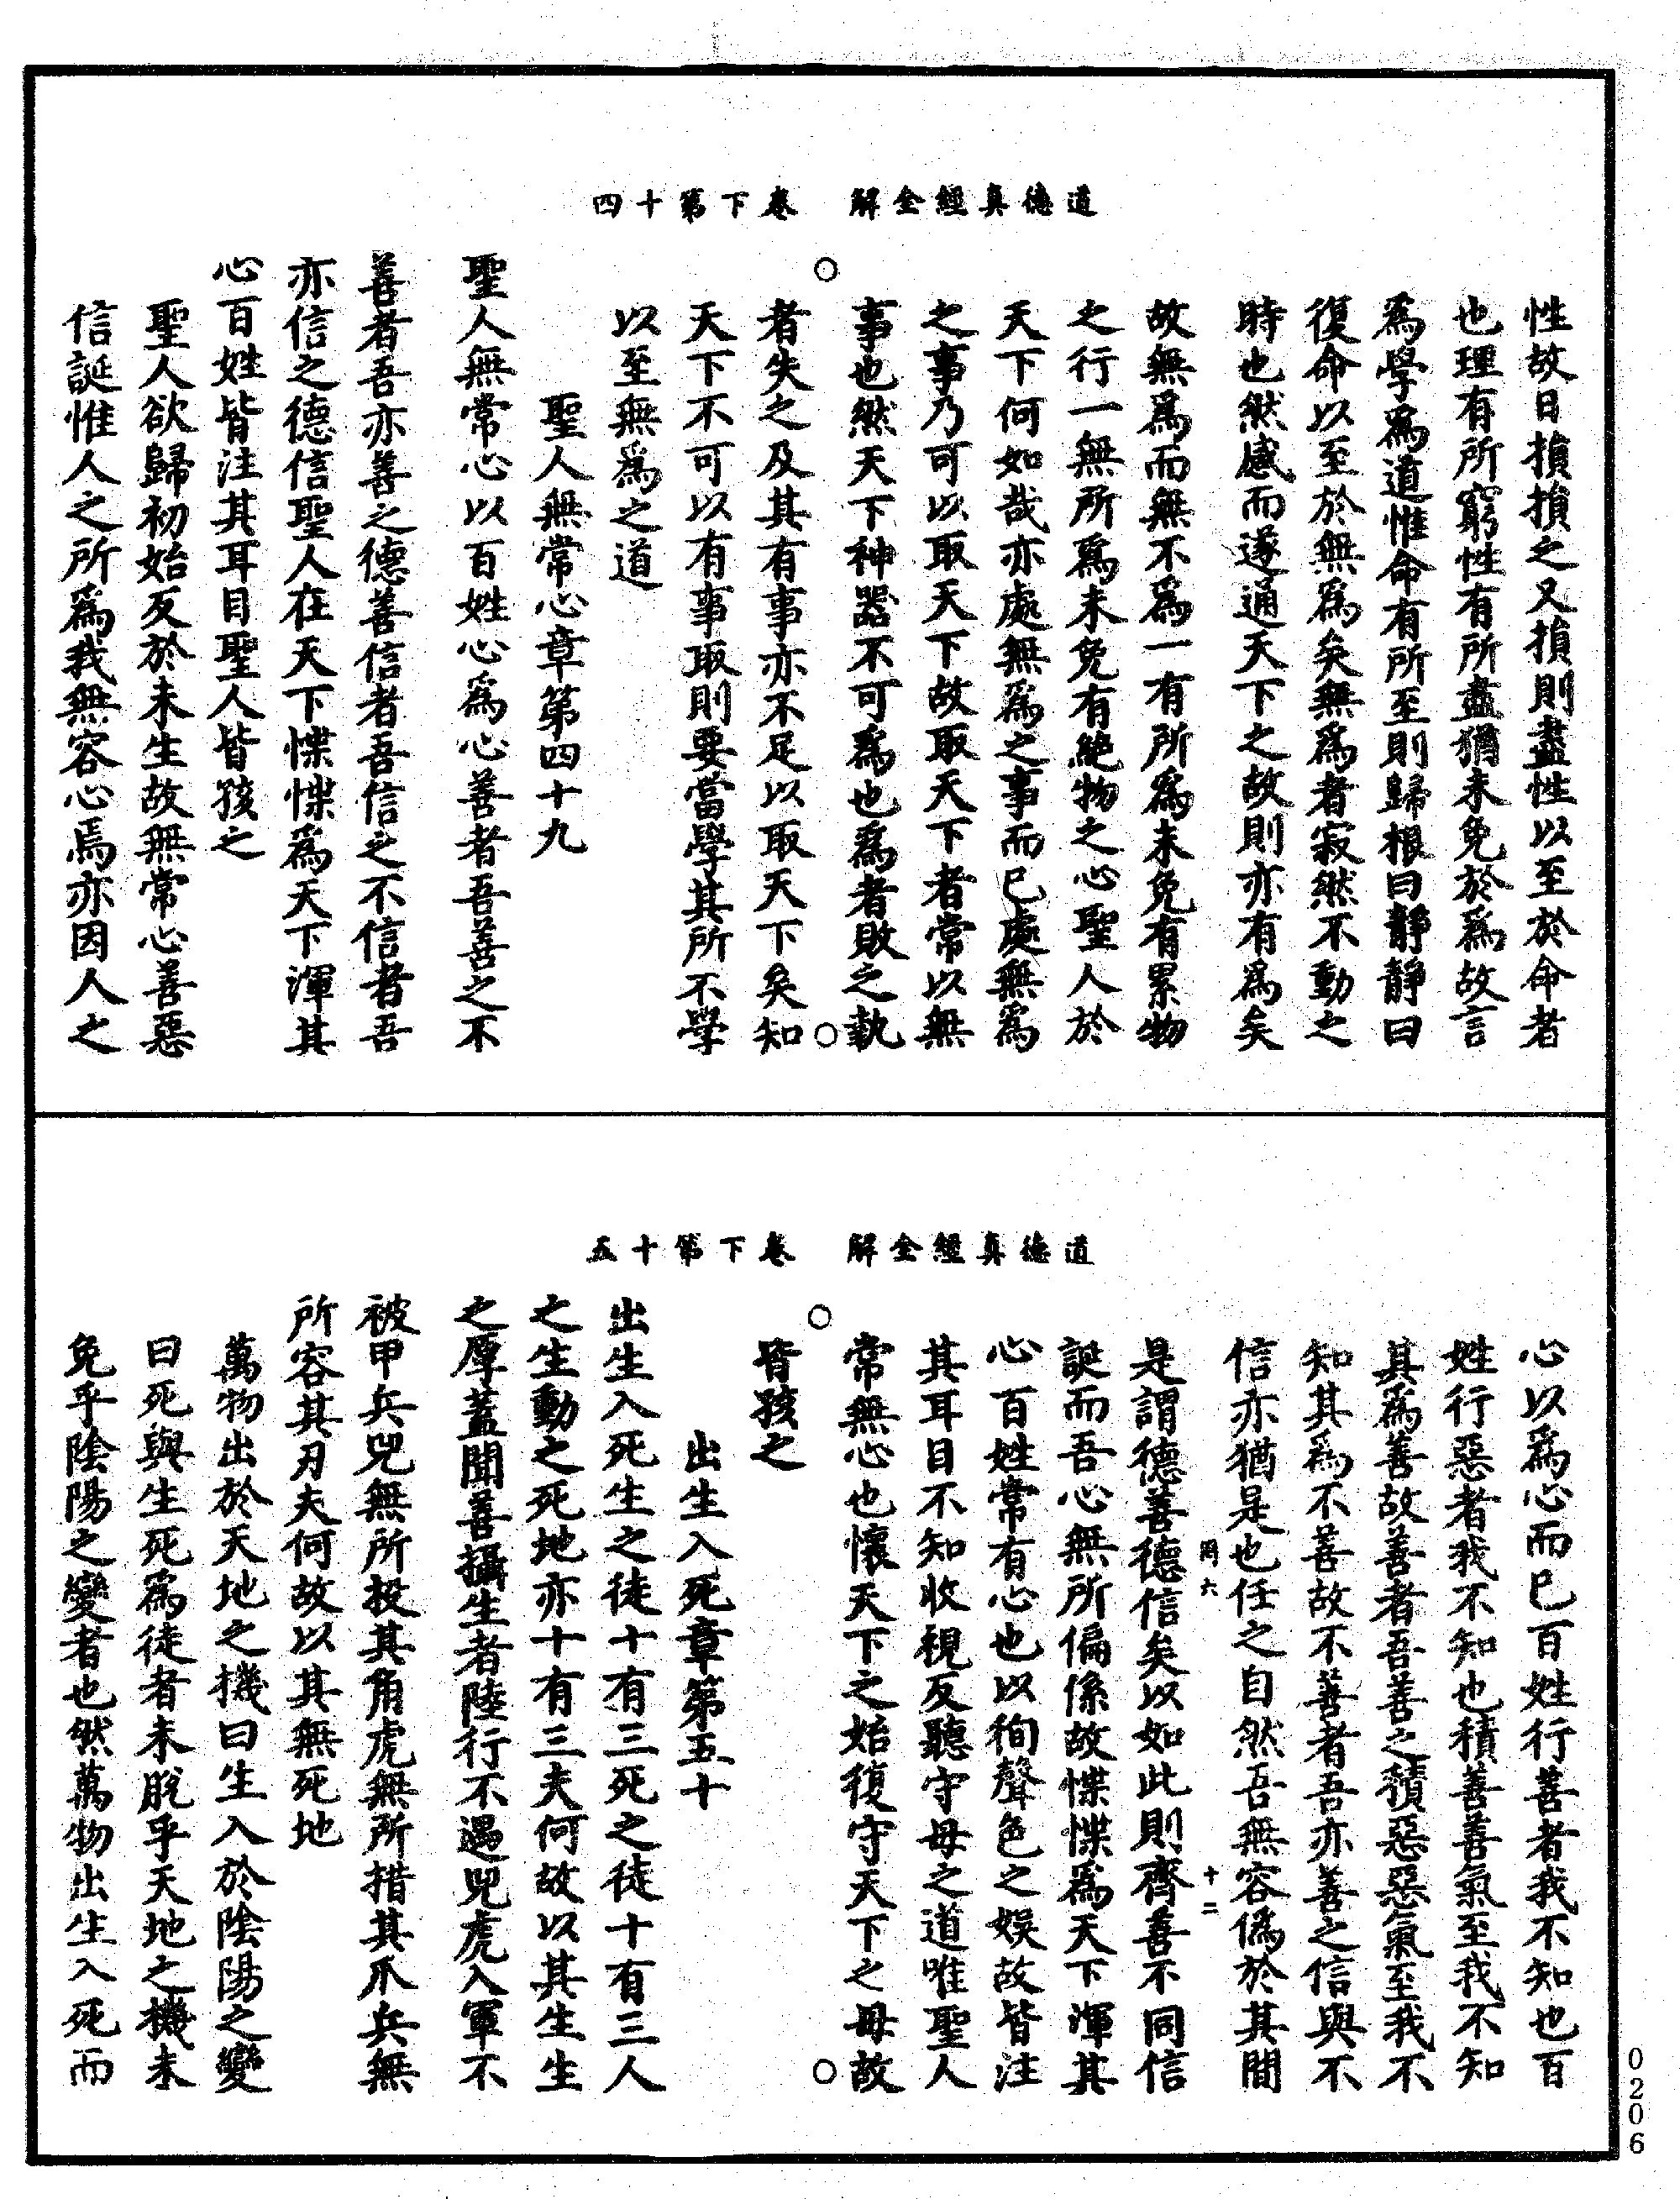 道德真經全解　卷下第十四
性故日損損之又損則盡性以至於命者
也理有所窮性有所盡猶未免於爲故言
爲學爲道惟命有所至則歸根曰靜靜曰
復命以至於無爲矣無爲者寂然不動之
時也然感而遂通天下之故則亦有爲矣
故無爲而無不爲一有所爲未免有累物
之行一無所爲未免有絕物之心聖人於
天下何如哉亦處無爲之事而已處無爲
之事乃可以取天下故取天下者常以無
事也然天下神器不可爲也爲者敗之執
者失之及其有事亦不足以取天下矣知
天下不可以有事取則要當學其所不學
以至無爲之道
聖人無常心章第四十九
聖人無常心以百姓心爲心善者吾善之不
善者吾亦善之德善信者吾信之不信者吾
亦信之德信聖人在天下惵惵爲天下渾其
心百姓皆注其耳目聖人皆孩之
聖人欲歸初始反於未生故無常心善惡
信誕惟人之所爲我無容心焉亦因人之
道德真經全解　卷下第十五
心以爲心而已百姓行善者我不知也百
姓行惡者我不知也積善善氣至我不知
其爲善故善者吾善之積惡惡氣至我不
知其爲不善故不善者吾亦善之信與不
信亦猶是也任之自然吾無容僞於其間
罔六　十二
是謂德善德信矣以如此則齊善不同信
誕而吾心無所偏係故惵惵爲天下渾其
心百姓常有心也以徇聲色之娛故皆注
其耳目不知收視反聽守母之道唯聖人
常無心也懷天下之始復守天下之母故
皆孩之
出生入死章第五十
出生入死生之徒十有三死之徒十有三人
之生動之死地亦十有三夫何故以其生生
之厚蓋聞善攝生者陸行不遇兕虎入軍不
被甲兵兕無所投其角虎無所措其爪兵無
所容其刃夫何故以其無死地
萬物出於天地之機曰生入於陰陽之變
曰死與生死爲徒者未脫乎天地之機未
免乎陰陽之變者也然萬物出生入死而
0206